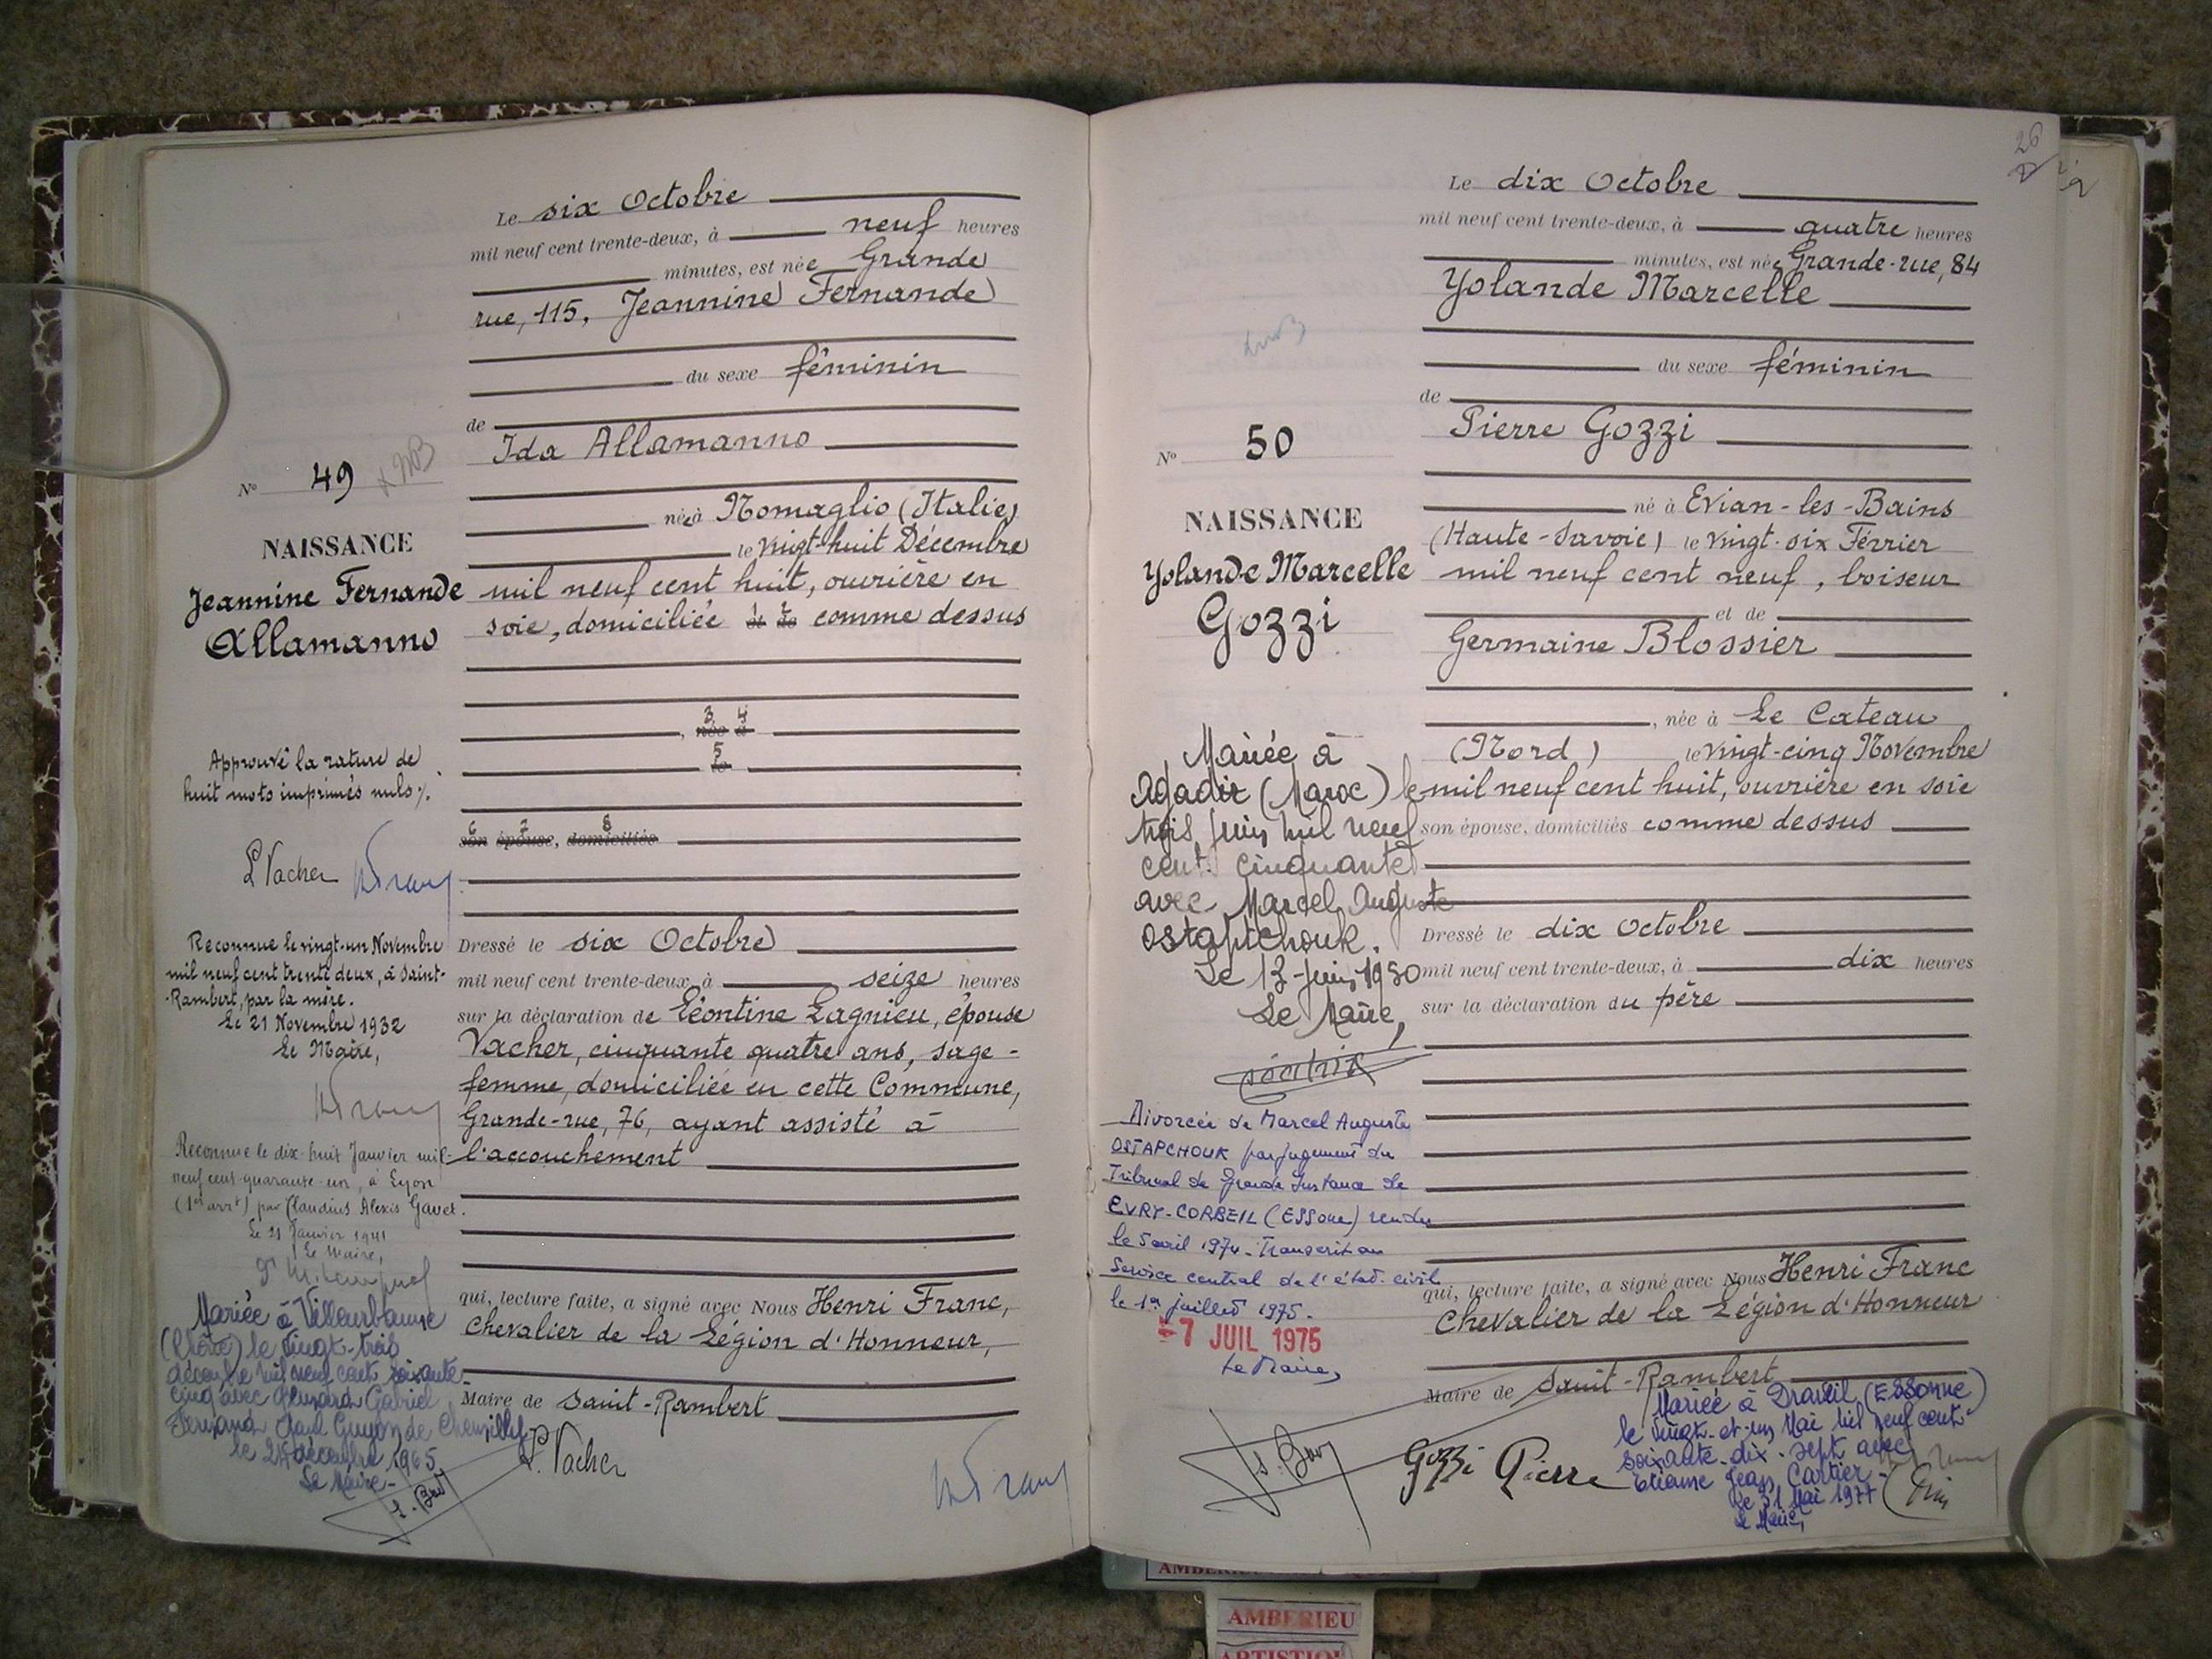 Le six Octobre
mil neuf cent trente-deux, à neuf heures
minutes, est née Grande
rue, 115, Jeannine Fernande
du sexe féminin
de
Ida Allamanno
née à Nomaglio (Italie)
le vingt-huit Décembre
mil neuf cent huit, ouvrière en
soie, domiciliée à le comme dessus
3 4
, née à
5
le
6 7 8
son épouse, domiciliés
Dressé le six Octobre
mil neuf cent trente-deux, à seize heures
sur la déclaration de Léontine Lagnieu, épouse
Vacher, cinquante quatre ans, sage-
femme, domiciliée en cette Commune,
Grande-rue, 76, ayant assisté à
l'accouchement
qui, lecture faite, a signé avec Nous Henri Franc,
Chevalier de la Légion d'Honneur,
Maire de Saint-Rambert
L. Vacher
N° 49
NAISSANCE
Jeannine Fernande
Allamanno
Approuvé la rature de
huit mots imprimés nuls %.
L Vacher
Reconnue le vingt-un Novembre
mil neuf cent trente deux, à Saint-
Rambert, par la mère.
Le 21 Novembre 1932
Le Maire,
Reconnue le dix-huit Janvier mil-
neuf cent quarante-un, à Lyon
(1er arrt) par Claudius Alexis Gavet.
Le 21 Janvier 1941
Le Maire,
Mariée à Villeurbanne
(Rhône) le vingt-trois
décembre mil neuf cent soixante
cinq avec Gabriel
Fernand Paul Guyon de Chemilly
le 24 décembre 1965
Le Maire
26
Le dix Octobre
mil neuf cent trente-deux, à quatre heures
minutes, est née Grande-rue, 84
Yolande Marcelle
du sexe féminin
de
Pierre Gozzi
né à Evian-les-Bains
(Haute-Savoie) le vingt-six Février
mil neuf cent neuf, boiseur
et de
Germaine Blossier
, née à Le Cateau
(Nord) le vingt-cinq Novembre
mil neuf cent huit, ouvrière en soie
son épouse, domiciliés comme dessus
Dressé le dix Octobre
mil neuf cent trente-deux, à dix heures
sur la déclaration du père
qui, lecture faite, a signé avec Nous Henri Franc
Chevalier de la Légion d'Honneur
Maire de Saint-Rambert
Gozzi Pierre
N° 50
NAISSANCE
Yolande Marcelle
Gozzi
Mariée à
Agadir (Maroc) le
trois juin mil neuf
cent cinquante
avec Marcel Auguste
Ostaptchouk.
Le 13 juin 1950
Le Maire,
Divorcée de Marcel Auguste
OSTAPCHOUK par jugement du
Tribunal de Grande Instance de
EVRY-CORBEIL (ESSonne) rendu
le 5 avril 1974. Transcrit au
Service central de l'état-civil
le 1er juillet 1975.
-7 JUIL 1975
Le Maire,
Mariée à Draveil (ESSonne)
le vingt-et-un Mai mil neuf cent
soixante-dix-sept avec
Etienne Jean Cartier
Le 31 Mai 1977
Le Maire,
AMBERIEU